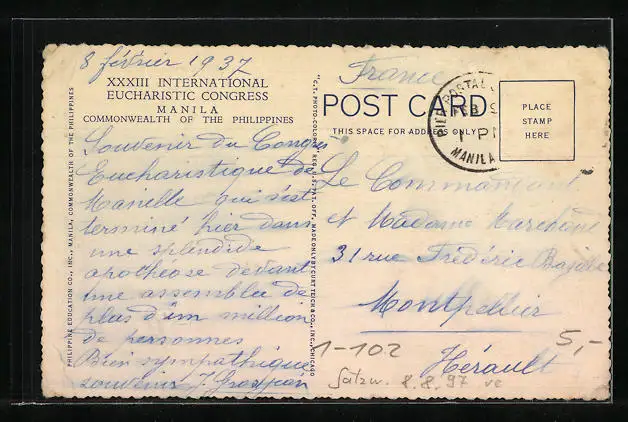 8 février 1937
XXXIII INTERNATIONAL
EUCHARISTIC CONGRESS
MANILA
COMMONWEALTH OF THE PHILIPPINES
Souvenir du Congrès
Eucharistique de
Manille qui s'est
terminé hier dans
une splendide
apothéose devant
une assemblée de
plus d'un million
de personnes
Bien sympathique
souvenir J. Grosjean
PHILIPPINE EDUCATION CO., INC., MANILA, COMMONWEALTH OF THE PHILIPPINES
"C.T. PHOTO-COLORIT" REG. U.S. PAT. OFF. MADE ONLY BY CURT TEICH & CO., INC., CHICAGO
France
POST CARD
THIS SPACE FOR ADDRESS ONLY
POSTAL
FEB
MANILA
PLACE
STAMP
HERE
Le Commandant
et Madame
31 rue Frédéric
Montpellier
Hérault
5,-
1-102
8.8.97